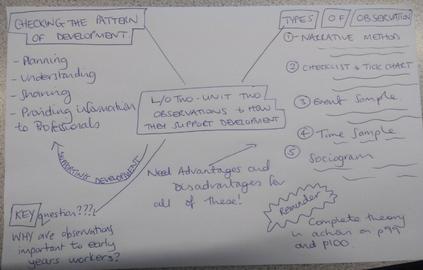 CHECKING THE PATTERN
OF DEVELOPMENT
- Planning
- Understanding
- Sharing
- Providing information
to Professionals
SUPPORTING DEVELOPMENT
KEY question???
WHY are observations
important to early
years workers?
L/O TWO - UNIT TWO
OBSERVATIONS & HOW
THEY SUPPORT DEVELOPMENT
Need Advantages and
Disadvantages for
all of These!
TYPES OF OBSERVATION
① NARRATIVE METHOD
② CHECKLIST & TICK CHART
③ Event Sample
④ Time Sample
⑤ Sociogram
Reminder
Complete theory
in action on p99
and p100.